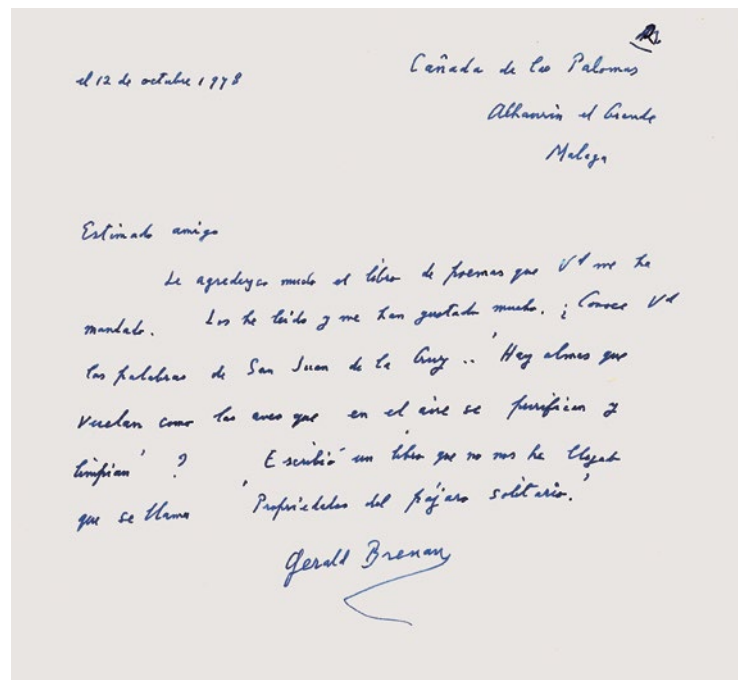 el 12 de octubre 1978
Cañada de las Palomas
Alhaurín el Grande
Malaga
Estimado amigo
Le agradezco mucho el libro de poemas que Vd me ha
mandado. Los he leido y me han gustado mucho. ¿Conoce Vd
las palabras de San Juan de la Cruz .. 'Hay almas que
vuelan como las aves que en el aire se purifican y
limpian' ? Escribió un libro que no nos ha llegado
que se llama 'Propriedades del pájaro solitario.'
Gerald Brenan